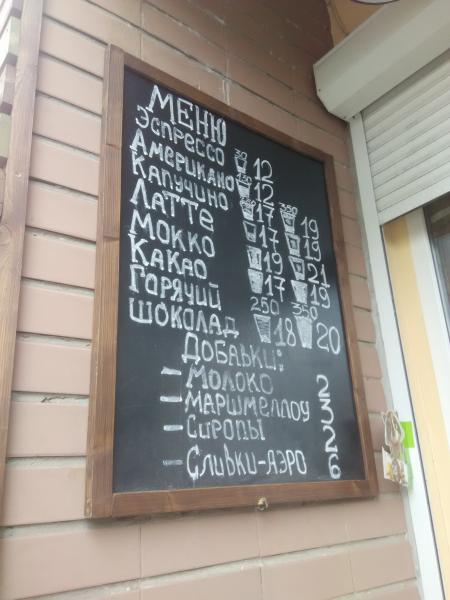 МЕНЮ
ЭСПРЕССО 30 12
АМЕРИКАНО 130 12
КАПУЧИНО 250 17 350 19
ЛАТТЕ 17 19
МОККО 19 21
КАКАО 17 19
ГОРЯЧИЙ 250 350
ШОКОЛАД 18 20
ДОБАВКИ:
– МОЛОКО 2
– МАРШМЕЛЛОУ 3
– СИРОПЫ 2
– СЛИВКИ-АЭРО 6